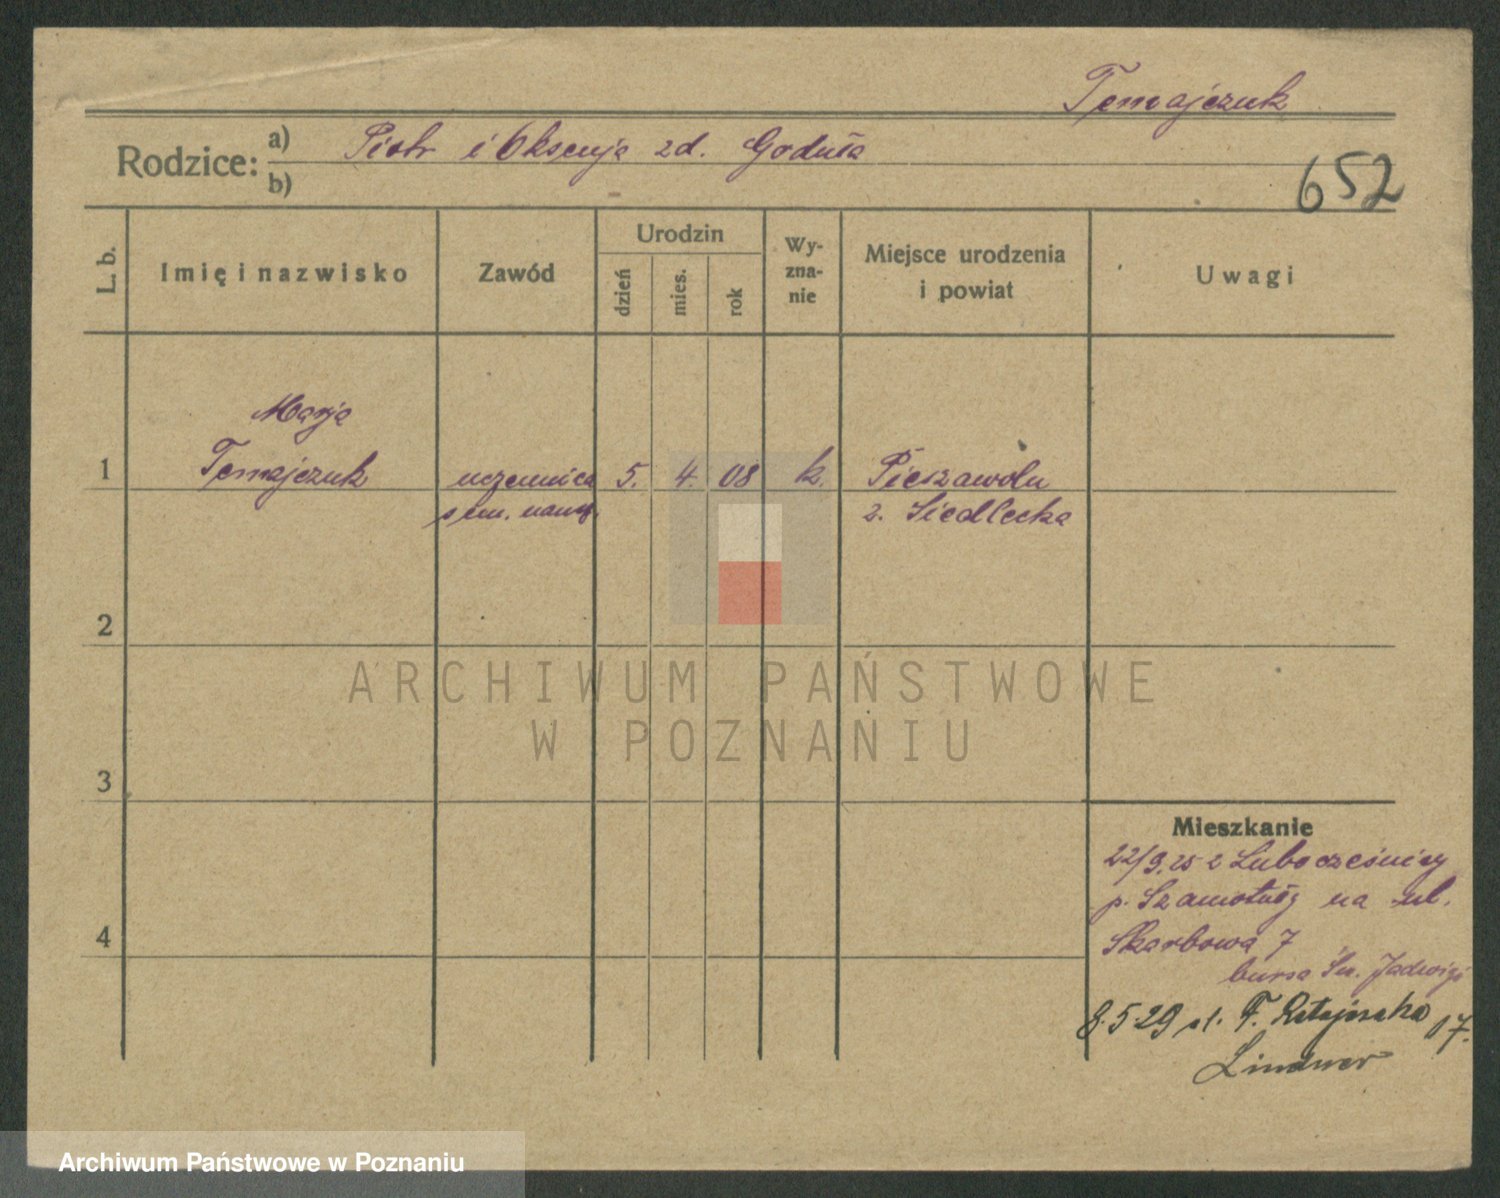 Temajczuk
Rodzice: a) Piotr i Oksenja zd. Goduła
b)
652
L. b.
Imię i nazwisko
Zawód
Urodzin
dzień
mies.
rok
Wy-
zna-
nie
Miejsce urodzenia
i powiat
Uwagi
Marja
1 Temajczuk uczennica 5. 4. 08 k. Pieszawolu
sem. naucz. z. Siedlecka
2
3
4
ARCHIWUM PAŃSTWOWE
W POZNANIU
Mieszkanie
22/9.25 z Lubocześnicy
p. Szamotuły na ul.
Skarbowa 7
bursa Św. Jadwigi
8.5.29 ul. F. Ratajczaka 17.
Lindner
Archiwum Państwowe w Poznaniu